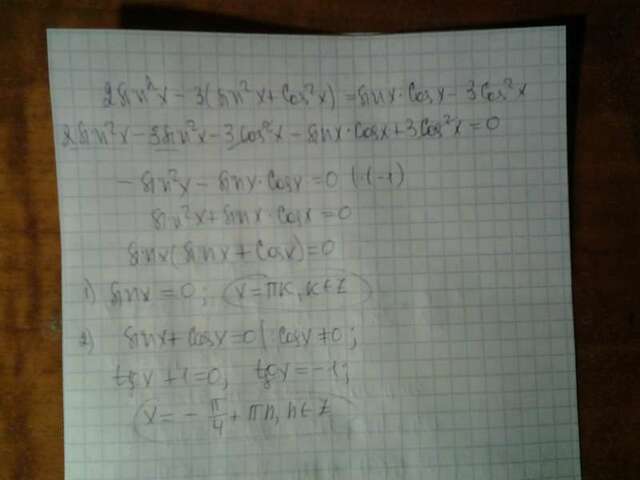 2sin²x - 3(sin²x + cos²x) = sinx·cosx - 3cos²x
2sin²x - 3sin²x - 3cos²x - sinx·cosx + 3cos²x = 0
- sin²x - sinx·cosx = 0 |·(-1)
sin²x + sinx·cosx = 0
sinx(sinx + cosx) = 0
1) sinx = 0; x = πk, k ∈ Z
2) sinx + cosx = 0 |: cosx ≠ 0;
tgx + 1 = 0; tgx = -1;
x = - π/4 + πn, n ∈ Z